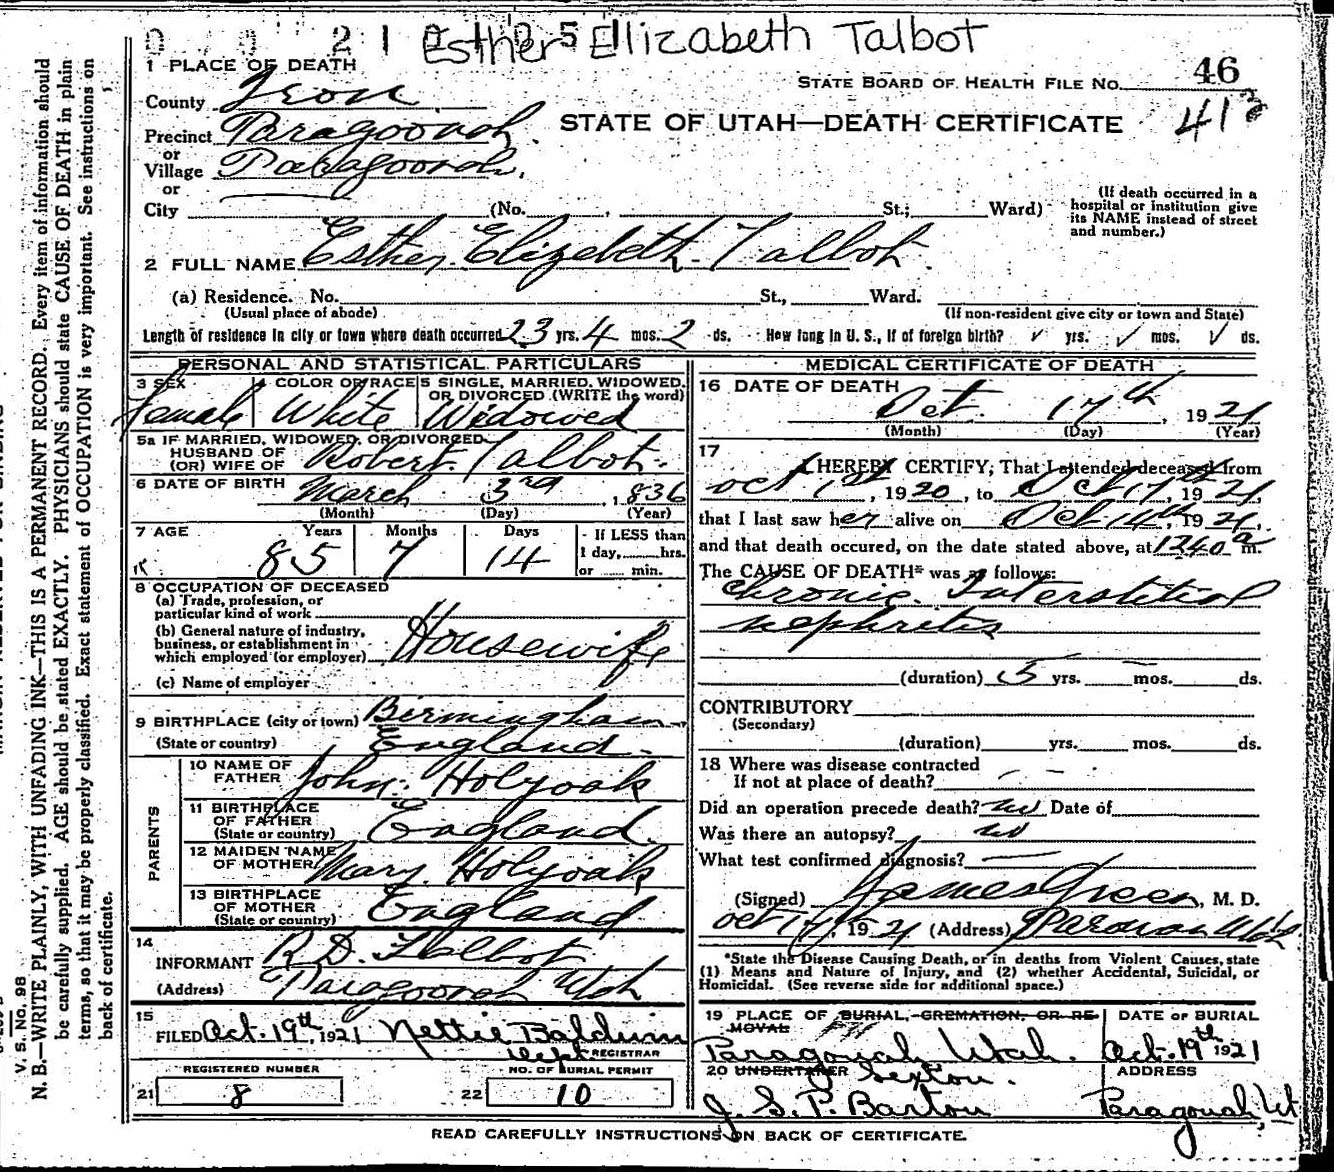 2 1 Esther Elizabeth Talbot
1 PLACE OF DEATH
STATE BOARD OF HEALTH FILE NO. 46
413
County Iron
Precinct Paragoonah.
STATE OF UTAH—DEATH CERTIFICATE
or
Village Paragoonah.
or
City (No. , St.; Ward)
(If death occurred in a hospital or institution give its NAME instead of street and number.)
2 FULL NAME Esther Elizebeth Talbot
(a) Residence. No. St., Ward.
(Usual place of abode) (If non-resident give city or town and State)
Length of residence in city or town where death occurred 23 yrs. 4 mos. 2 ds. How long in U. S., if of foreign birth? ✓ yrs. ✓ mos. ✓ ds.
PERSONAL AND STATISTICAL PARTICULARS
3 SEX 4 COLOR OR RACE 5 SINGLE, MARRIED, WIDOWED, OR DIVORCED (WRITE the word)
Female White Widowed
5a IF MARRIED, WIDOWED, OR DIVORCED
HUSBAND OF
(OR) WIFE OF Robert Talbot.
6 DATE OF BIRTH March 3rd, 1836
(Month) (Day) (Year)
7 AGE Years Months Days If LESS than
1 day, hrs.
or min.
85 7 14
8 OCCUPATION OF DECEASED
(a) Trade, profession, or
particular kind of work
(b) General nature of industry,
business, or establishment in
which employed (or employer) Housewife
(c) Name of employer
9 BIRTHPLACE (city or town) Birmingham
(State or country) England.
PARENTS
10 NAME OF
FATHER John Holyoak
11 BIRTHPLACE
OF FATHER
(State or country) England.
12 MAIDEN NAME
OF MOTHER Mary Holyoak
13 BIRTHPLACE
OF MOTHER
(State or country) England
14
INFORMANT R.D. Talbot
(Address) Paragoonah Utah
15
FILED Oct. 19th, 1921 Nettie Baldwin
Dept REGISTRAR
REGISTERED NUMBER NO. OF BURIAL PERMIT
21 8 22 10
MEDICAL CERTIFICATE OF DEATH
16 DATE OF DEATH
Oct. 17th, 1921
(Month) (Day) (Year)
17
I HEREBY CERTIFY, That I attended deceased from
Oct 1st, 1920, to Oct 17th, 1921,
that I last saw her alive on Oct 14th, 1921,
and that death occured, on the date stated above, at 1240 a m.
The CAUSE OF DEATH* was as follows:
Chronic Interstitial
nephritis
(duration) 5 yrs. — mos. — ds.
CONTRIBUTORY
(Secondary)
(duration) yrs. mos. ds.
18 Where was disease contracted
If not at place of death?
Did an operation precede death? no Date of
Was there an autopsy? no
What test confirmed diagnosis? —
(Signed) James Green, M. D.
Oct 17th, 1921 (Address) Parowan Utah
*State the Disease Causing Death, or in deaths from Violent Causes, state
(1) Means and Nature of Injury, and (2) whether Accidental, Suicidal, or
Homicidal. (See reverse side for additional space.)
19 PLACE OF BURIAL, CREMATION, OR RE- DATE OF BURIAL
MOVAL
Paragonah Utah. Oct. 19th 1921
20 UNDERTAKER Sexton. ADDRESS
J. S. P. Barton Paragonah, Ut
READ CAREFULLY INSTRUCTIONS ON BACK OF CERTIFICATE.
V. S. No. 98
N. B.—WRITE PLAINLY, WITH UNFADING INK—THIS IS A PERMANENT RECORD. Every item of information should
be carefully supplied. AGE should be stated EXACTLY. PHYSICIANS should state CAUSE OF DEATH in plain
terms, so that it may be properly classified. Exact statement of OCCUPATION is very important. See instructions on
back of certificate.